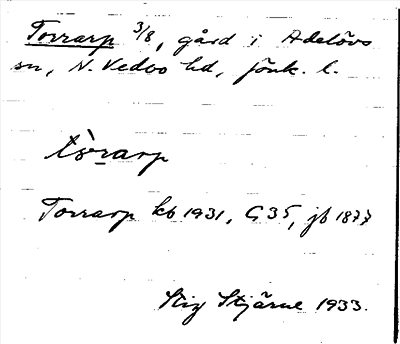 Torrarp 3/8, gård i Adelövs
sn, N. Vedbo hd, Jönk. l.
tòrarp
Torrarp kb 1931, G35, jb 1877
Stig Stjärne 1933.